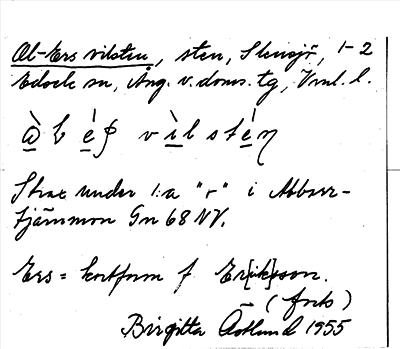 Ol-Ers vilsten, sten, Stensjö, 1-2
Edocke sn, Ång. v. doms. tg, Vml. l.
vìlstén
Strax under 1:a "r" i Abborr-
tjärnmon Gn 68 NV.
Ers = kortform f Er[ik]sson.
(forts)
Birgitta Östlund 1955